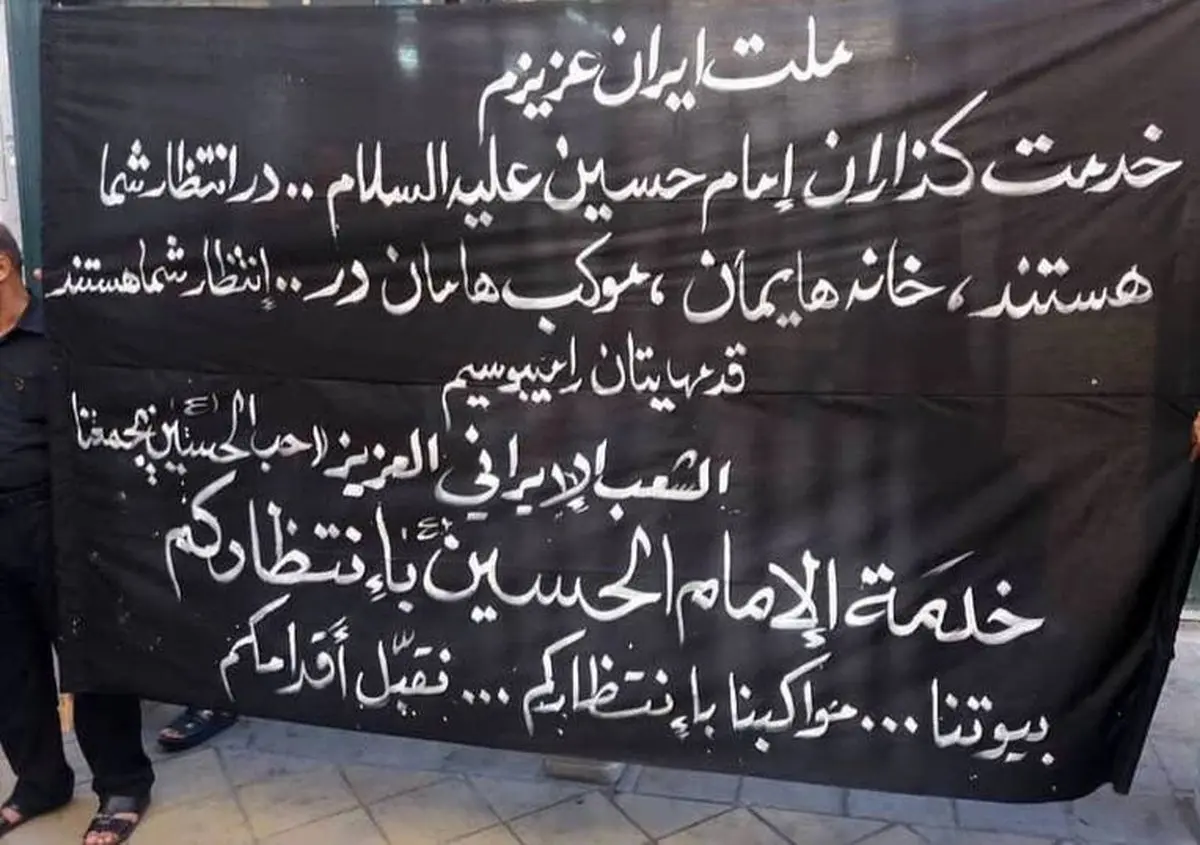 ملت ایران عزیزم
خدمت کذاران إمام حسین علیه السلام .. در انتظار شما
هستند ، خانه هایمأن ، موکب هامان در .. إنتظار شما هستند
قدمهایتان را میبوسیم
الشعب الإيراني العزيز لاحب الحسين (ع) يجمعنا
خدمَة الإمام الحسين (ع) بإنتظاركم
بيوتنا ... مواكبنا بإنتظاركم ... نقبّل أقدامكم